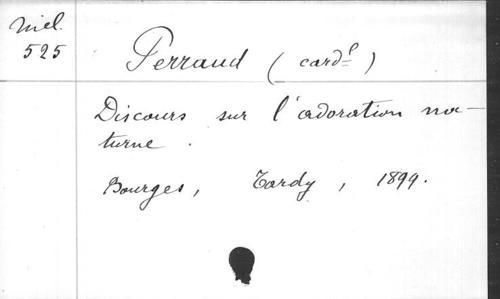 Miel.
525
Perraud (cardl)
Discours sur l'adoration noc-
turne.
Bourges, Tardy, 1899.